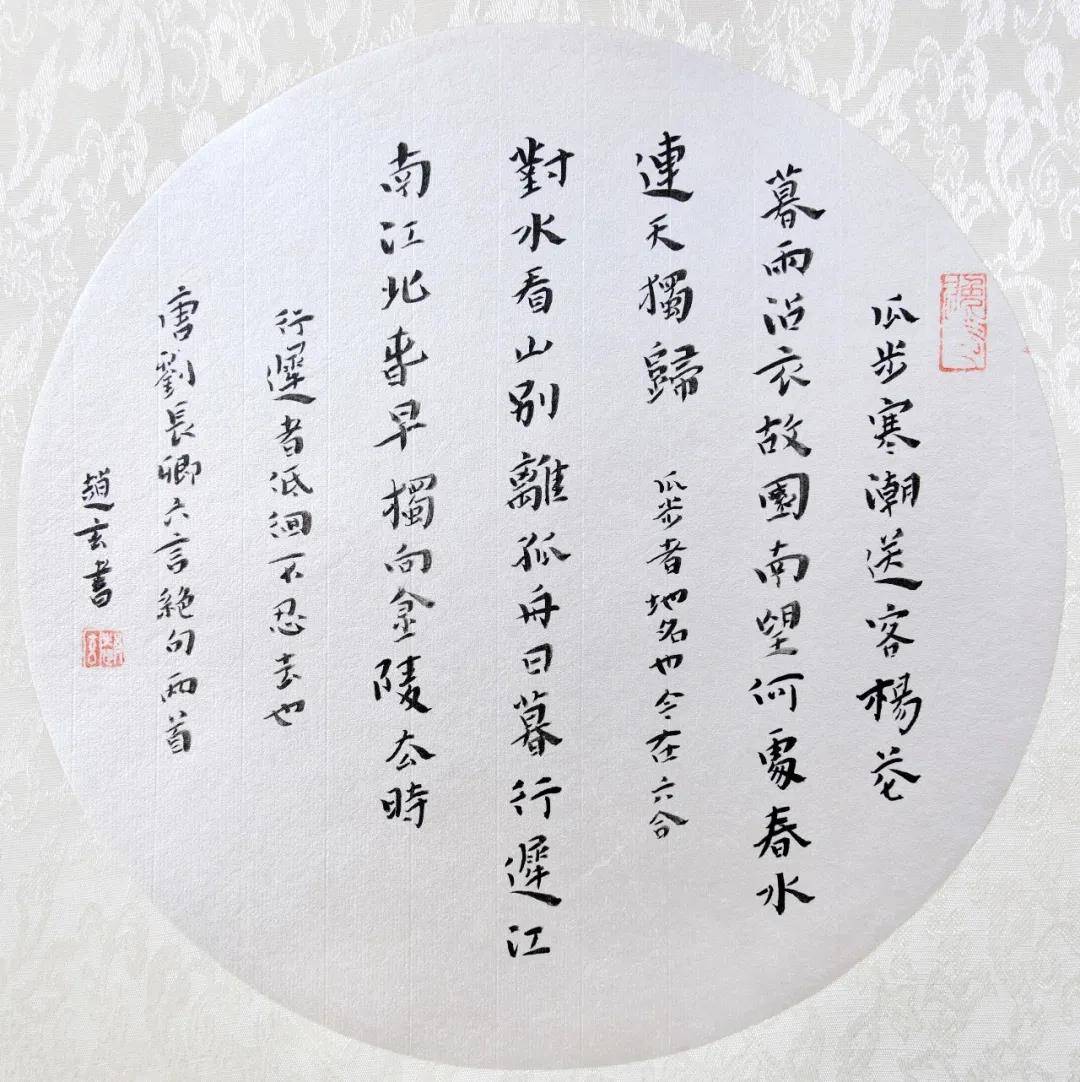 瓜步寒潮送客楊花
暮雨沾衣故園南望何處春水
連天獨歸 瓜步者地名也今在六合
對水看山別離孤舟日暮行遲江
南江北春早獨向金陵去時
行遲者低徊不忍去也
唐劉長卿六言絕句兩首
趙玄書